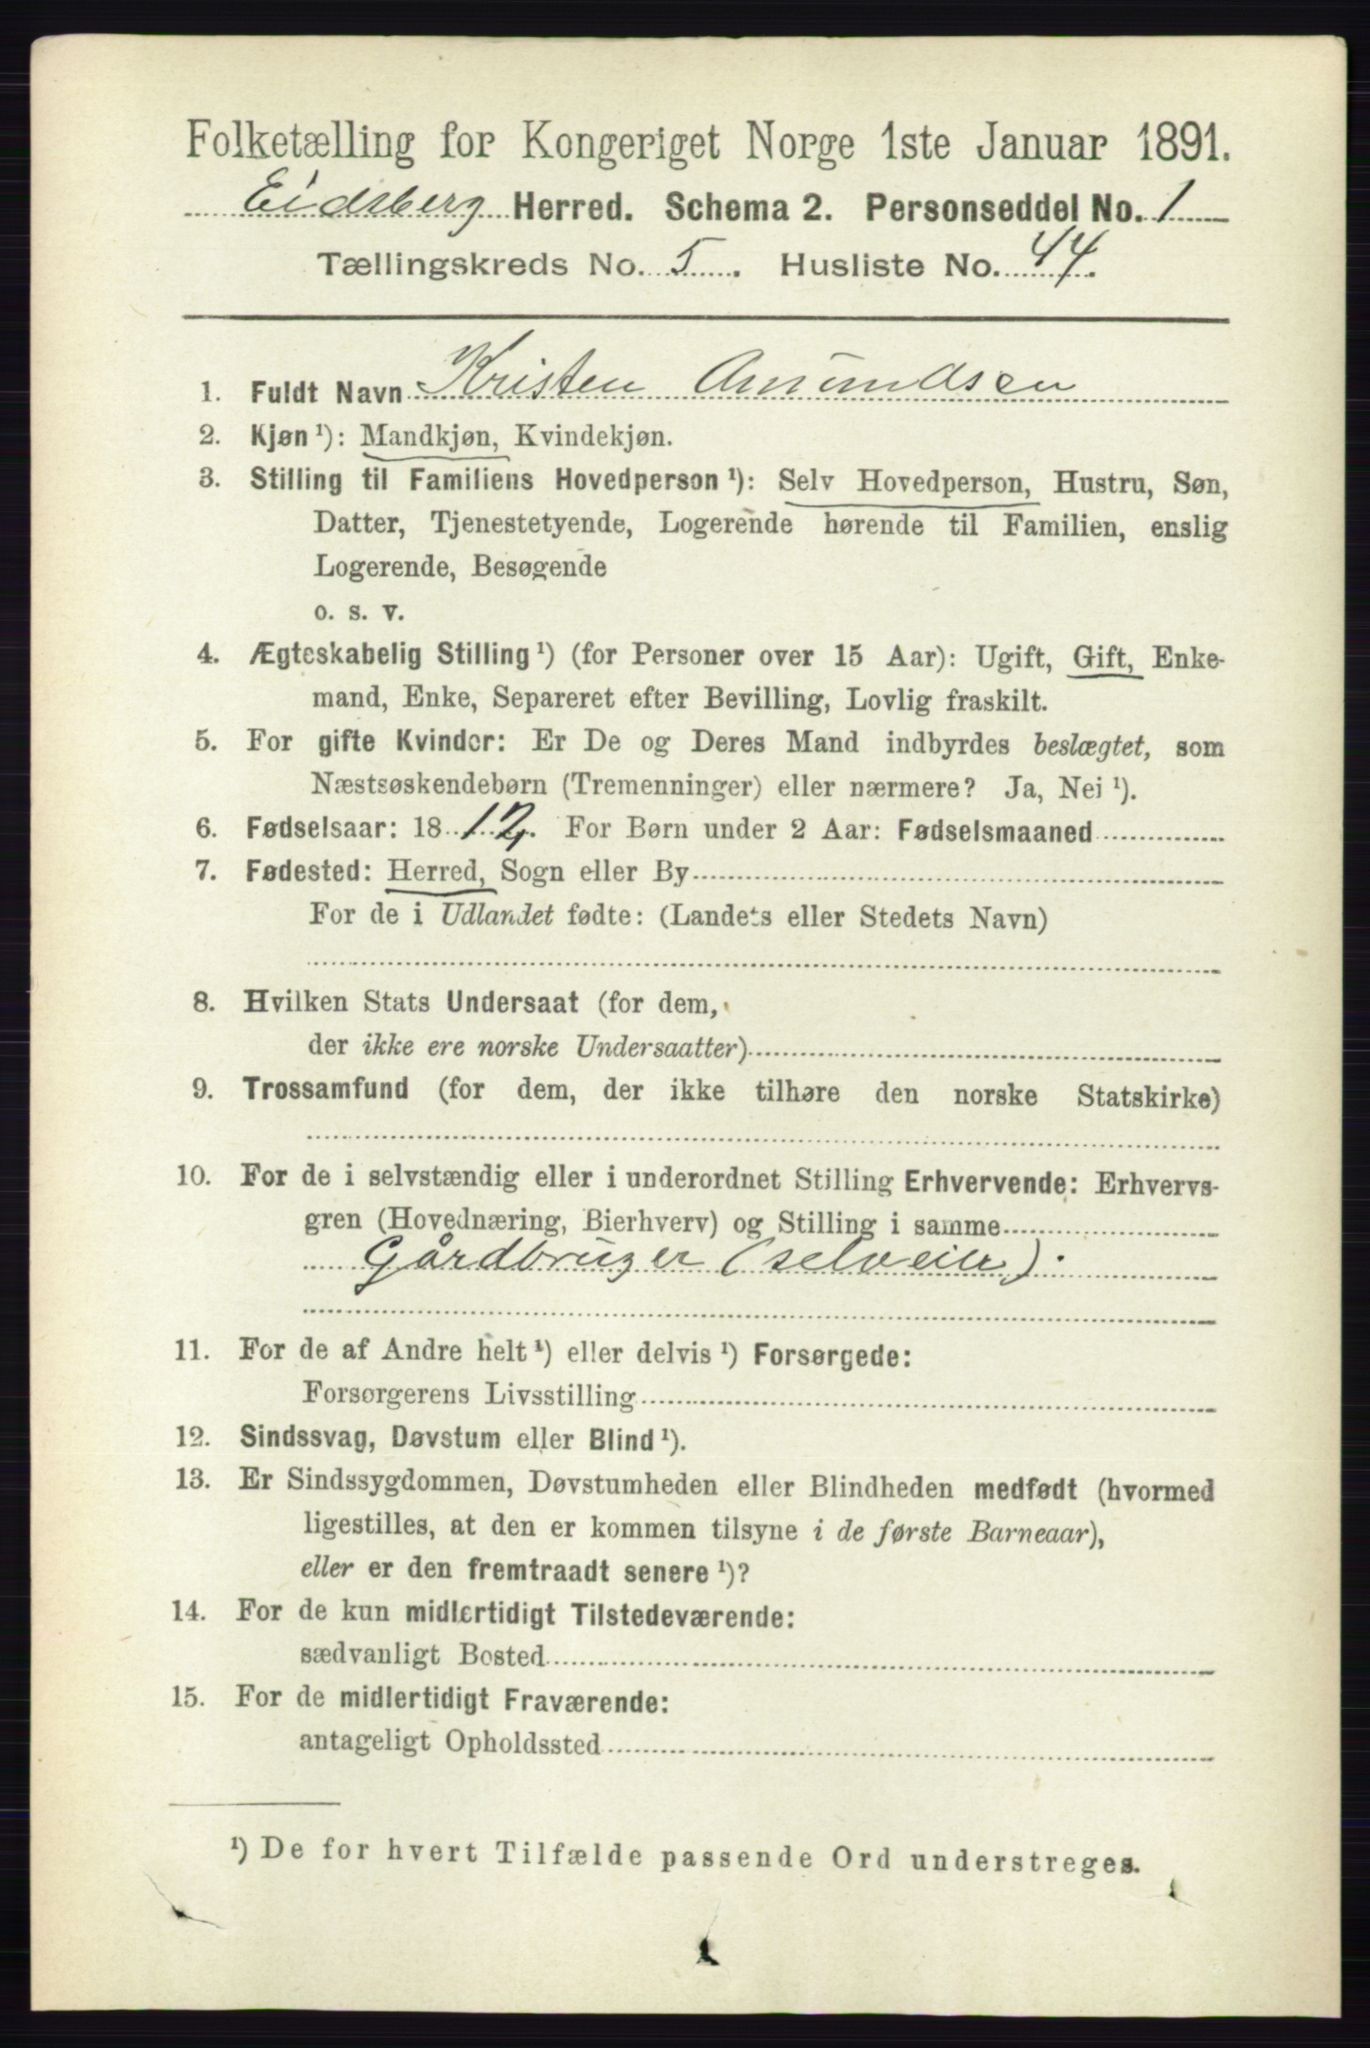 Folketælling for Kongeriget Norge 1ste Januar 1891.
Eidsberg Herred. Schema 2. Personseddel No. 1
Tællingskreds No. 5. Husliste No. 44.
1. Fuldt Navn Kristen Amundsen
2. Kjøn ¹): Mandkjøn, Kvindekjøn.
3. Stilling til Familiens Hovedperson ¹): Selv Hovedperson, Hustru, Søn,
Datter, Tjenestetyende, Logerende hørende til Familien, enslig
Logerende, Besøgende
o. s. v.
4. Ægteskabelig Stilling ¹) (for Personer over 15 Aar): Ugift, Gift, Enke-
mand, Enke, Separeret efter Bevilling, Lovlig fraskilt.
5. For gifte Kvinder: Er De og Deres Mand indbyrdes beslægtet, som
Næstsøskendebørn (Tremenninger) eller nærmere? Ja, Nei ¹).
6. Fødselsaar: 1812. For Børn under 2 Aar: Fødselsmaaned
7. Fødested: Herred, Sogn eller By
For de i Udlandet fødte: (Landets eller Stedets Navn)
8. Hvilken Stats Undersaat (for dem,
der ikke ere norske Undersaatter)
9. Trossamfund (for dem, der ikke tilhøre den norske Statskirke)
10. For de i selvstændig eller i underordnet Stilling Erhvervende: Erhvervs-
gren (Hovednæring, Bierhverv) og Stilling i samme
Gårdbruger (selveier).
11. For de af Andre helt ¹) eller delvis ¹) Forsørgede:
Forsørgerens Livsstilling
12. Sindssvag, Døvstum eller Blind ¹).
13. Er Sindssygdommen, Døvstumheden eller Blindheden medfødt (hvormed
ligestilles, at den er kommen tilsyne i de første Barneaar),
eller er den fremtraadt senere ¹)?
14. For de kun midlertidigt Tilstedeværende:
sædvanligt Bosted
15. For de midlertidigt Fraværende:
antageligt Opholdssted
¹) De for hvert Tilfælde passende Ord understreges.